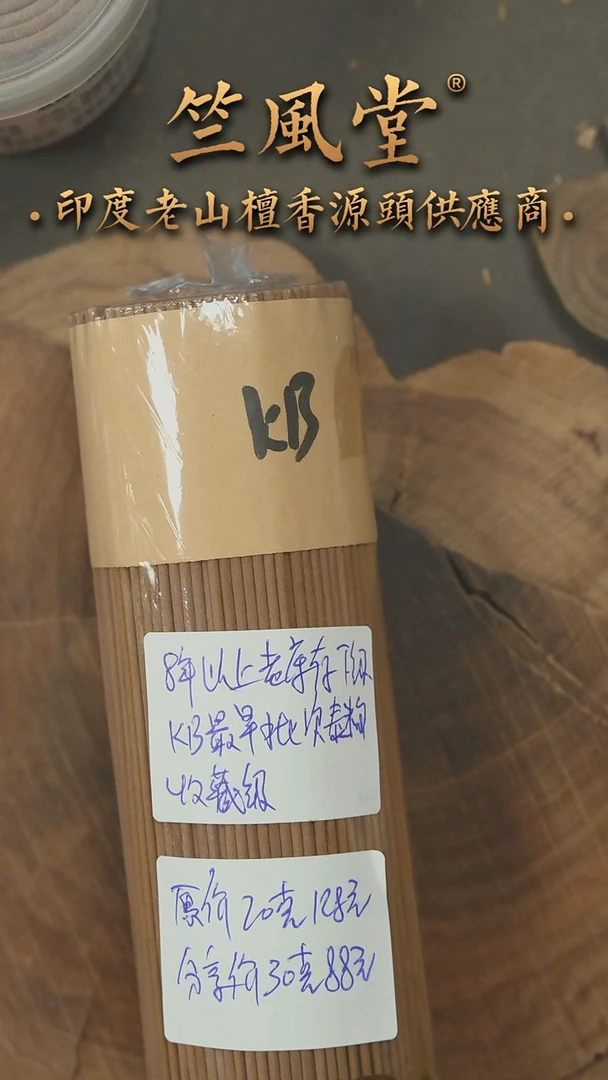 竺風堂®
·印度老山檀香源頭供應商·
KB
8年以上老库存顶级
KB最早批次麦粉
收藏级
原价20克128元
分享价30克88元